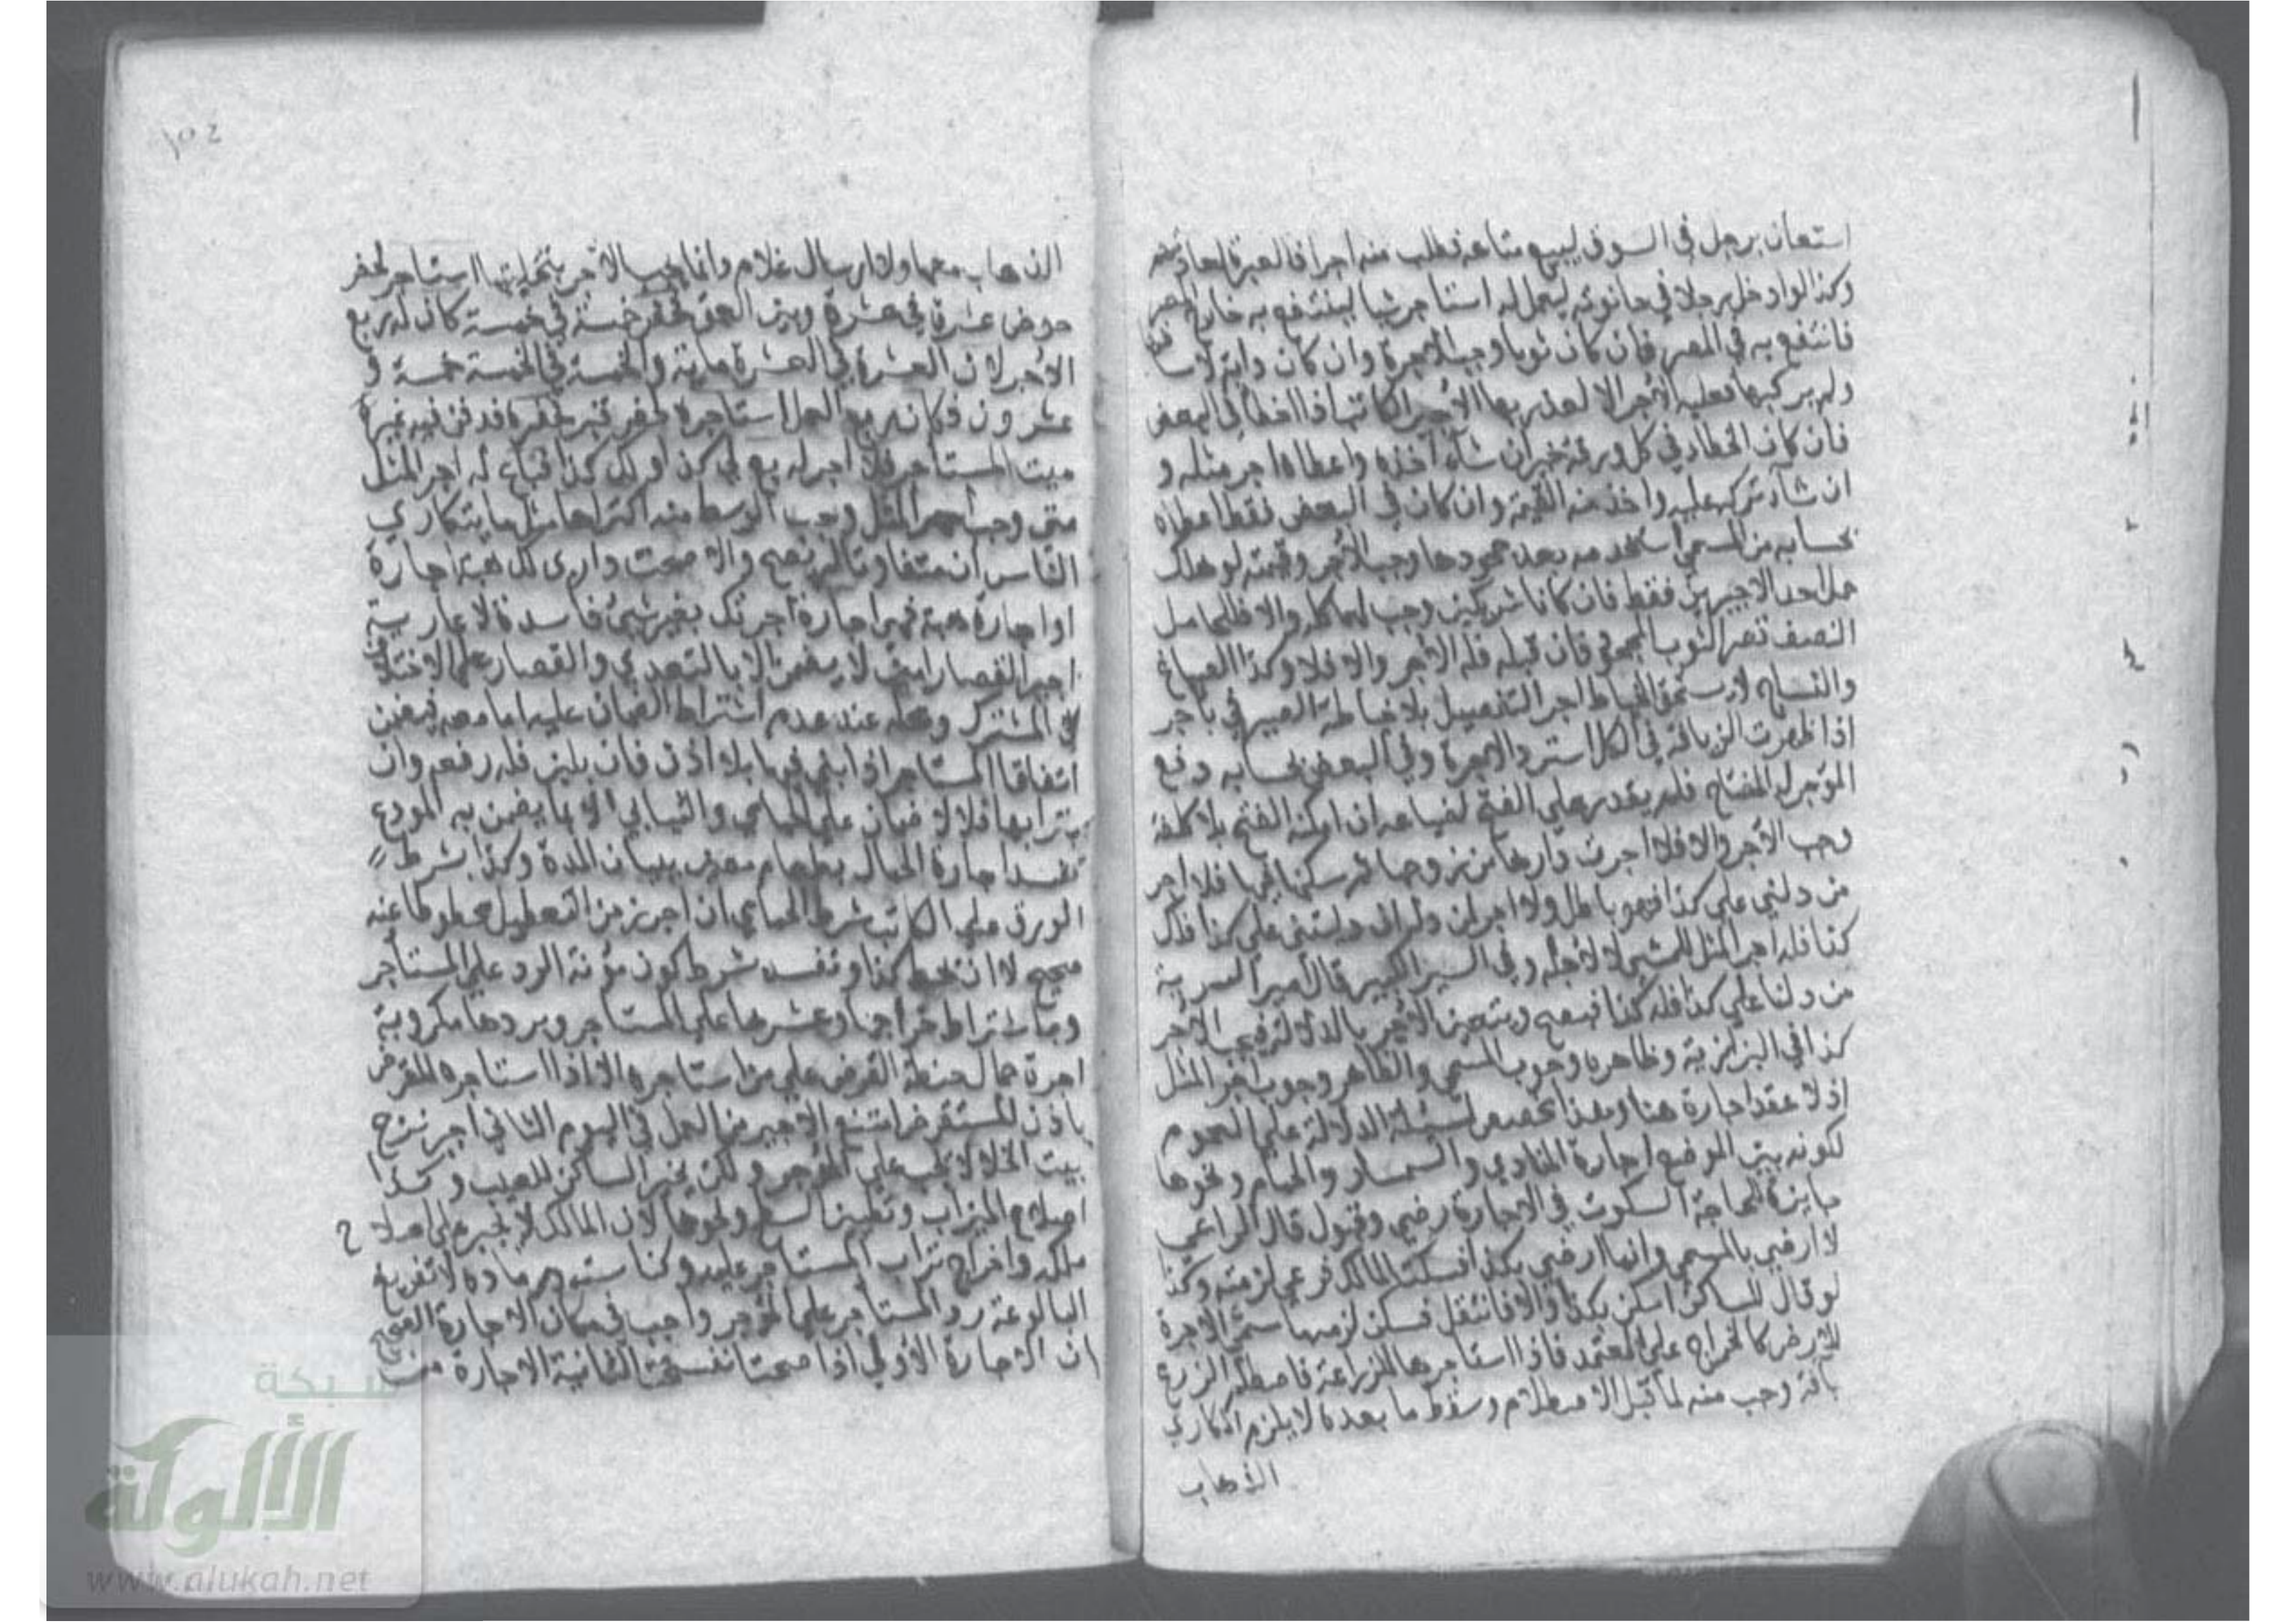 استعان برجل في السوق ليبيع متاعه فطلب منه اجرا فالعبرة لعادتهم
وكذا لو ادخل رجلا في حانوته ليعمل له استاجر شيا لينتفع به خارج المصر
فانتفع به في المصر فان كان ثوبا وجب الاجرة وان كان دابة لا
ولم يركبها فعليه الأجر الا لعذر بها الأجير الكاتب اذا اخطا في البعض
فان كان الخطاء في كل ورقة خير ان شاء اخذه واعطاه اجر مثله و
ان شاء تركه عليه واخذ منه القيمة وان كان في البعض فقط اعطاه
بحسابه من المسمى استخدمه بعد جحودها وجب الأجر وقيمته لو هلك
حمل احد الاجيرين فقط فان كانا شريكين وجب لهما كله والا فللعامل
النصف قصر الثوب المجحود فان قبله فله الأجر والا فلا وكذا الصباغ
والنساج لا يستحق الخياط اجر التفصيل بلا خياطة الصيرفي باجر
اذا ظهرت الزيافة في الكل استرد الاجرة وفي البعض بحسابه دفع
المؤجر له المفتاح فلم يقدر على الفتح لضياعه ان امكنه الفتح بلا كلفة
وجب الأجر والا فلا اجرت دارها من زوجها ثم سكنا فيها فلا اجر
من دلني على كذا فهو باطل ولا اجر لمن دله ان دلتني على كذا فلك
كذا فله اجر المثل للمشي لا لأجله وفي السير الكبير قال امير السرية
من دلنا على كذا فله كذا فيصح ويتعين الأجر بالدلالة فيجب الأجر
كذا في البزازية وظاهره وجوب المسمى والظاهر وجوب اجر المثل
اذ لا عقد اجارة هنا وهذا تخصيص لمسئلة الدلالة على العموم
لكونه بين الموضع اجارة المنادي والسمسار والحمام ونحوها
جايزة للحاجة السكوت في الاجارة رضي وقبول قال الراعي
لا ارضى بالمسمى وانما ارضى بكذا فسكت المالك فرعى لزمته وكذا
لو قال للساكن اسكن بكذا والا فانتقل فسكن لزمه ما سمى الاجرة
للارض كالخراج على المعتمد فاذا استاجرها للزراعة فاصطلم الزرع
بآفة وجب منه لما قبل الاصطلام وسقط ما بعده لا يلزم المكاري
الذهاب
١٥٤
الذهاب معها ولا ارسال غلام وانما يجب الأجر بتخليتها استاجر لحفر
حوض عشرة في عشرة وبين العمق فحفر خمسة في خمسة كان له ربع
الأجر لان العشرة في العشرة ماية والخمسة في الخمسة خمسة و
عشرون فكان ربع العمل استاجره لحفر قبر فحفره فدفن فيه غير
ميت المستاجر فلا اجر له بع لي كذا ولك كذا فباع له اجر المثل
متى وجب اجر المثل وجب الوسط منه اكتراها مثل ما يتكارى
الناس ان متفاوتا لم يصح والا صحت داري لك هبة اجارة
او اجارة هبة فهي اجارة اجرتك بغير شيء فاسدة لا عارية
اجير القصار امين لا يضمن الا بالتعدي والقصار على الاختلاف
في المشترك ومحله عند عدم اشتراط الضمان عليه اما معه فيضمن
اتفاقا المستاجر اذا بنى فيها بلا اذن فان بلبن فله رفعه وان
بترابها فلا لا ضمان على الحمامي والثيابي الا بما يضمن به المودع
تفسد اجارة الحمال بطعام معين ببيان المدة وكذا بشرط
الورق على الكاتب شرط الحمامي ان اجر زمن التعطيل محطوط عنه
صحيح لا ان تحط كذا وتفسد بشرط كون مؤنة الرد على المستأجر
وباشتراط خراجها وعشرها على المستاجر وبردها مكروبة
اجرة حمال حنطة القرض على من استاجره الا اذا استاجره المقرض
باذن المستقرض امتنع الأجير من العمل في اليوم الثاني اجبر نزح
بيت الخلا لا يجب على المؤجر ولكن يخير الساكن للعيب وكذا
اصلاح الميزاب وتطيين السطح ونحوها لان المالك لا يجبر على اصلاح
ملكه واخراج تراب المستاجر عليه وكناسته ورماده لا تفريغ
البالوعة رد المستأجر على المؤجر واجب في مكان الاجارة الصحيح
ان الاجارة الأولى اذا صحت انفسخت الثانية الاجارة من
شبكة
الألوكة
www.alukah.net